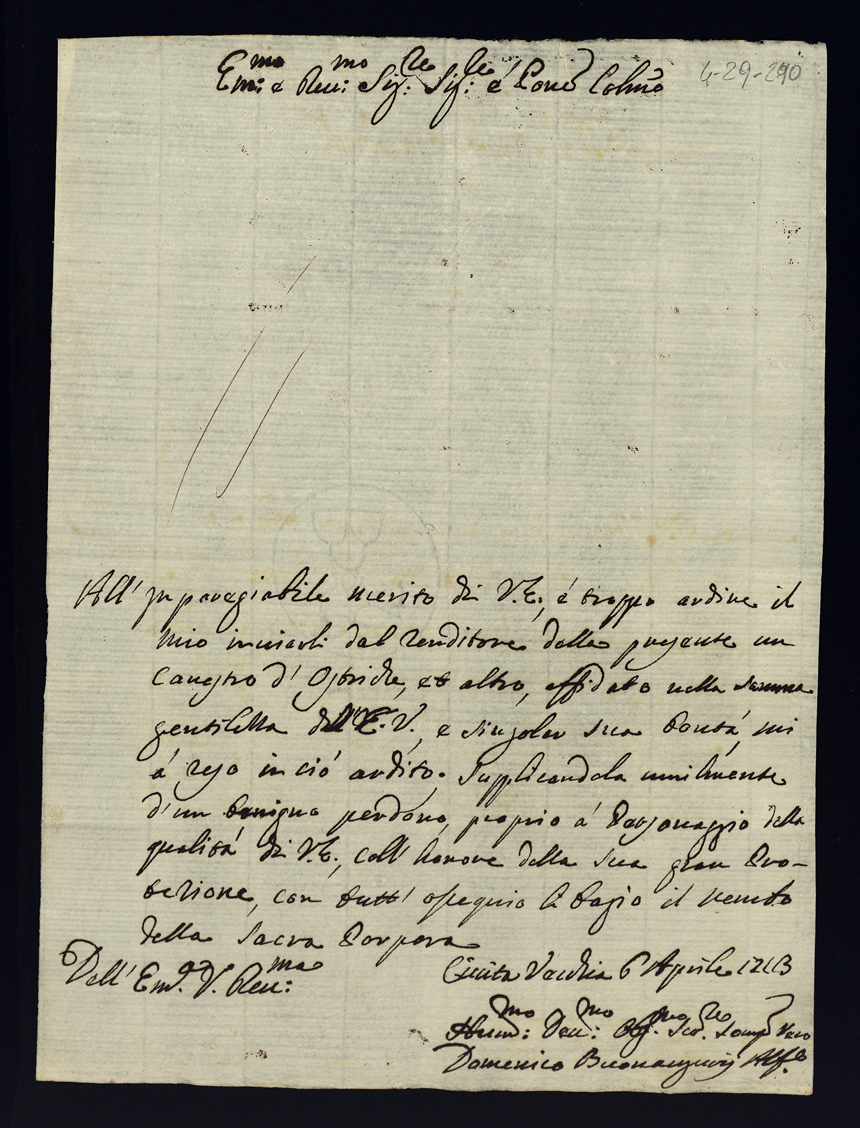 Em:mo e Reu:mo Sig:re Sig:re e Pone Colmo
4-29-290
All' Jnparegiabile merito di V.E., é troppo ardire il
mio inuiarli dal Renditore della presente un
Canestro d' Ostriche, et altro, affidato nella somma
gentilezza dell'E.V., e singolar sua bontá mi
á reso in ció ardito. Supplicandola umilmente
d'un benigno perdono, proprio á Personaggio della
qualitá di V.E., coll' honore della sua gran Pro-
tezione, con tutt' ossequio li bagio il lembo
della Sacra Porpora
Dell' Em:a V. Reu:ma
Ciuita Vecchia 6 Aprile
Hum:mo Deu:mo Obl:mo Ser:re
Domenico